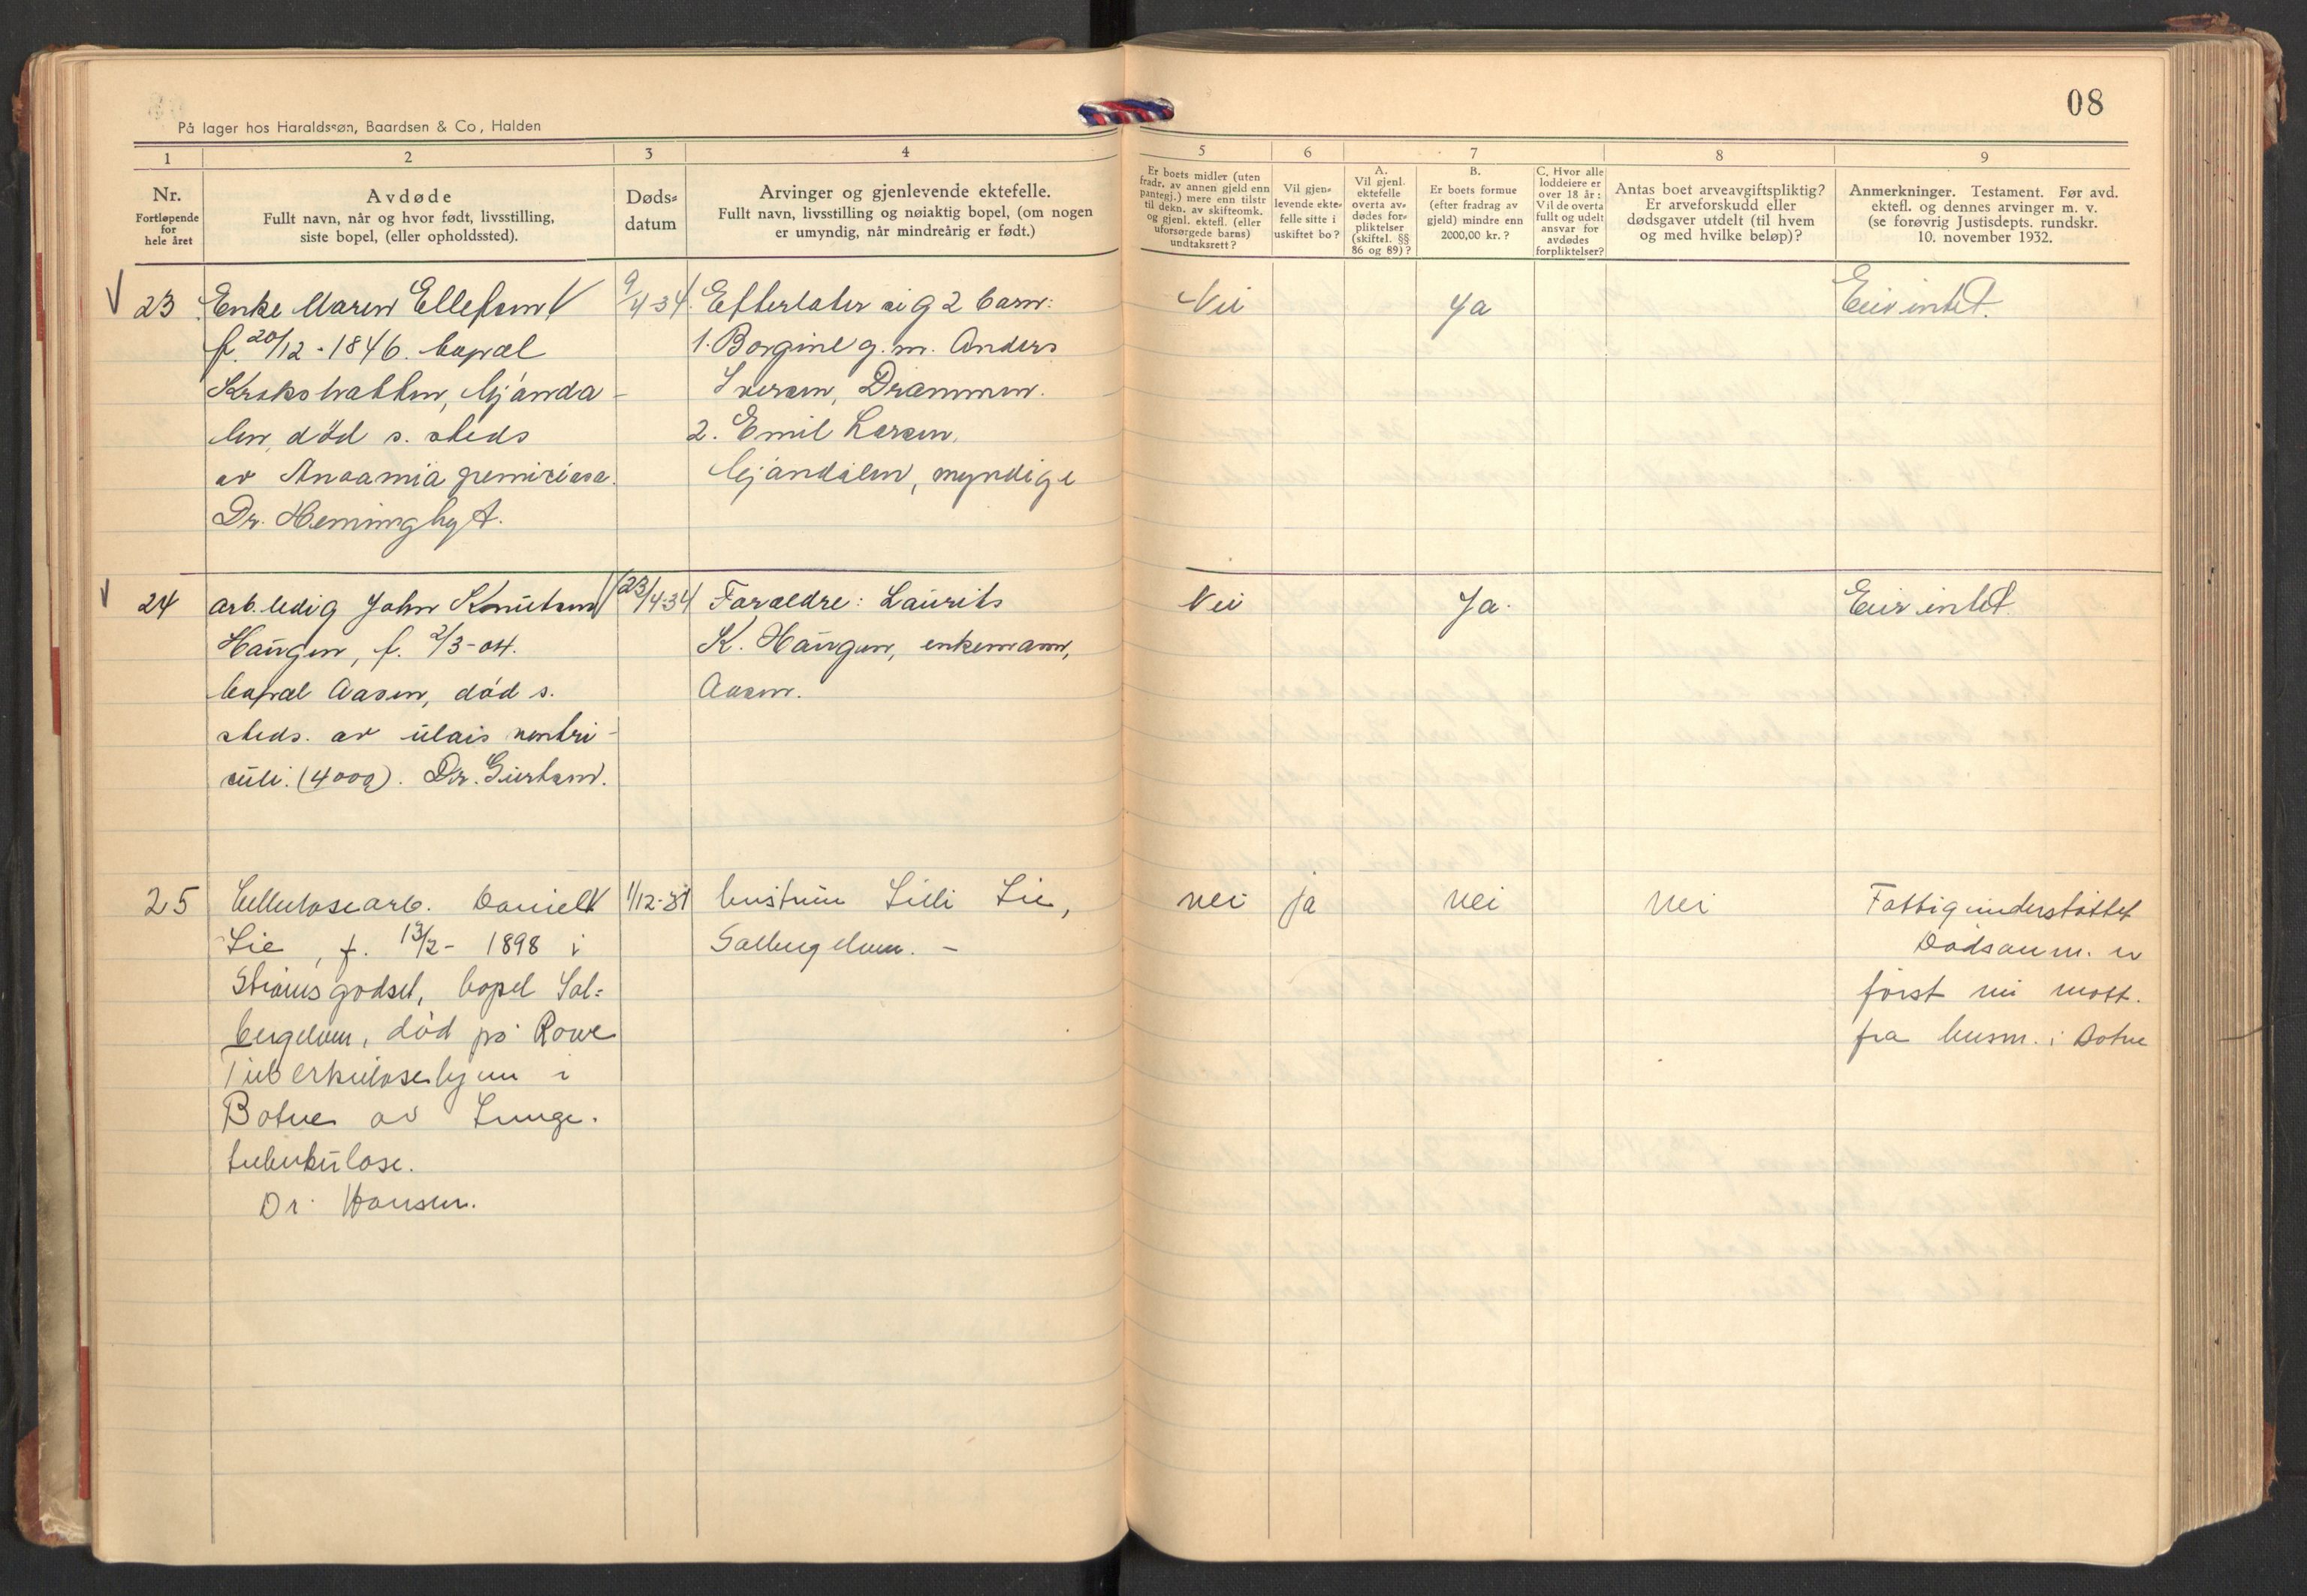 08
På lager hos Haraldssøn, Baardsen & Co, Halden
1 2 3 4 5 6 7 8 9
Nr.
Fortløpende
for
hele året
Avdøde
Fullt navn, når og hvor født, livsstilling,
siste bopel, (eller opholdssted).
Døds-
datum
Arvinger og gjenlevende ektefelle.
Fullt navn, livsstilling og nøiaktig bopel, (om nogen
er umyndig, når mindreårig er født.)
Er boets midler (uten
fradr. av annen gjeld enn
pantegj.) mere enn tilstr
til dekn. av skifteomk.
og gjenl. ektefl. (eller
uforsørgede barns)
undtaksrett?
Vil gjen-
levende ekte-
felle sitte i
uskiftet bo?
A.
Vil gjenl.
ektefelle
overta av-
dødes for-
pliktelser
(skiftel. §§
86 og 89)?
B.
Er boets formue
(efter fradrag av
gjeld) mindre enn
2000,00 kr.?
C. Hvor alle
loddeiere er
over 18 år:
Vil de overta
fullt og udelt
ansvar for
avdødes
forpliktelser?
Antas boet arveavgiftspliktig?
Er arveforskudd eller
dødsgaver utdelt (til hvem
og med hvilke beløp)?
Anmerkninger. Testament. Før avd.
ektefl. og dennes arvinger m. v.
(se forøvrig Justisdepts. rundskr.
10. november 1932.
23
Enke Maren Ellefsen
f. 20/12-1846. bopæl
Krokstrabben, Mjønda-
len, død s. steds
av Anaamia
Dr. Heminghyt.
9/4-34
Efterlater sig 2 barn:
1. Borgine g. m. Anders
Iversen, Drammen.
2. Emil Larsen,
Mjøndalen, myndige
Nei
Ja
Eier intet.
24
arb.ledig John Knutsen
Haugen, f. 2/3-04.
bopæl Aasen, død s.
steds. av ulcis ventri-
culi. Dr.
23/4-34
Foreldre: Laurits
K. Haugen, enkemann,
Aasen.
Nei
Ja.
Eier intet.
25
Cellulosearb. Daniel
Lie, f. 13/2-1898 i
Strømsgodset, bopel Sol=
bergelven, død på Rove
Tuberkulosehjem i
Botne av Lunge-
tuberkulose.
Dr. Hansen.
1/12-31
hustru Lilli Lie,
Solbergelven. –
nei
ja
nei
nei
Fattigunderstøttet
Dødsanm. er
først nu mott.
fra lensm. i Botne